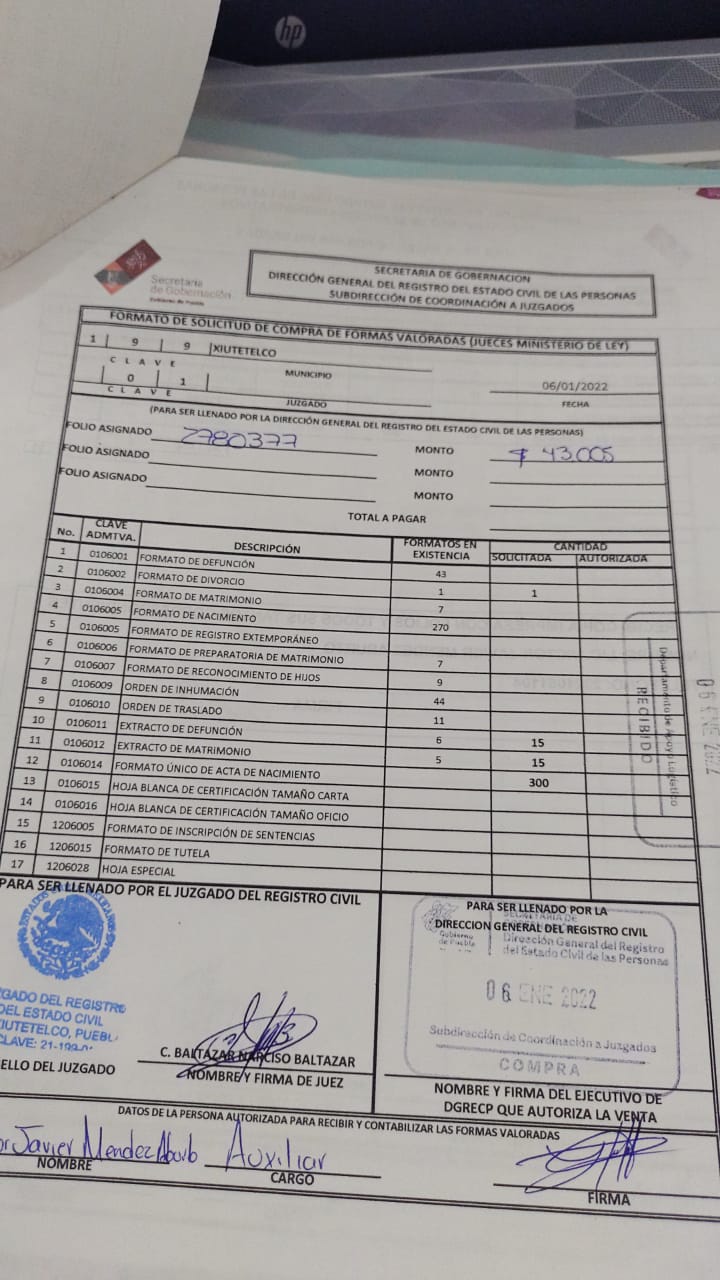 hp
Secretaría
de Gobernación
Gobierno de Puebla
SECRETARIA DE GOBERNACION
DIRECCIÓN GENERAL DEL REGISTRO DEL ESTADO CIVIL DE LAS PERSONAS
SUBDIRECCIÓN DE COORDINACIÓN A JUZGADOS
FORMATO DE SOLICITUD DE COMPRA DE FORMAS VALORADAS (JUECES MINISTERIO DE LEY)
1 9 9 XIUTETELCO
CLAVE MUNICIPIO
0 1 06/01/2022
CLAVE JUZGADO FECHA
(PARA SER LLENADO POR LA DIRECCIÓN GENERAL DEL REGISTRO DEL ESTADO CIVIL DE LAS PERSONAS)
FOLIO ASIGNADO 2780377 MONTO $ 43,005
FOLIO ASIGNADO MONTO
FOLIO ASIGNADO MONTO
TOTAL A PAGAR
No. CLAVE ADMTVA. DESCRIPCIÓN FORMATOS EN EXISTENCIA CANTIDAD
SOLICITADA AUTORIZADA
1 0106001 FORMATO DE DEFUNCIÓN 43
2 0106002 FORMATO DE DIVORCIO 1 1
3 0106004 FORMATO DE MATRIMONIO 7
4 0106005 FORMATO DE NACIMIENTO 270
5 0106005 FORMATO DE REGISTRO EXTEMPORÁNEO
6 0106006 FORMATO DE PREPARATORIA DE MATRIMONIO 7
7 0106007 FORMATO DE RECONOCIMIENTO DE HIJOS 9
8 0106009 ORDEN DE INHUMACIÓN 44
9 0106010 ORDEN DE TRASLADO 11
10 0106011 EXTRACTO DE DEFUNCIÓN 6 15
11 0106012 EXTRACTO DE MATRIMONIO 5 15
12 0106014 FORMATO ÚNICO DE ACTA DE NACIMIENTO 300
13 0106015 HOJA BLANCA DE CERTIFICACIÓN TAMAÑO CARTA
14 0106016 HOJA BLANCA DE CERTIFICACIÓN TAMAÑO OFICIO
15 1206005 FORMATO DE INSCRIPCIÓN DE SENTENCIAS
16 1206015 FORMATO DE TUTELA
17 1206028 HOJA ESPECIAL
Departamento de Apoyo Logístico
RECIBIDO
06 ENE 2022
PARA SER LLENADO POR EL JUZGADO DEL REGISTRO CIVIL
PARA SER LLENADO POR LA
DIRECCION GENERAL DEL REGISTRO CIVIL
Gobierno de Puebla
SECRETARÍA DE
Dirección General del Registro
del Estado Civil de las Personas
06 ENE 2022
Subdirección de Coordinación a Juzgados
COMPRA
ZGADO DEL REGISTRO
DEL ESTADO CIVIL
IUTETELCO, PUEBL
CLAVE: 21-199-01
ELLO DEL JUZGADO
C. BALTAZAR NARCISO BALTAZAR
NOMBRE Y FIRMA DE JUEZ
NOMBRE Y FIRMA DEL EJECUTIVO DE
DGRECP QUE AUTORIZA LA VENTA
DATOS DE LA PERSONA AUTORIZADA PARA RECIBIR Y CONTABILIZAR LAS FORMAS VALORADAS
or Javier Mendez Auxiliar
NOMBRE CARGO FIRMA